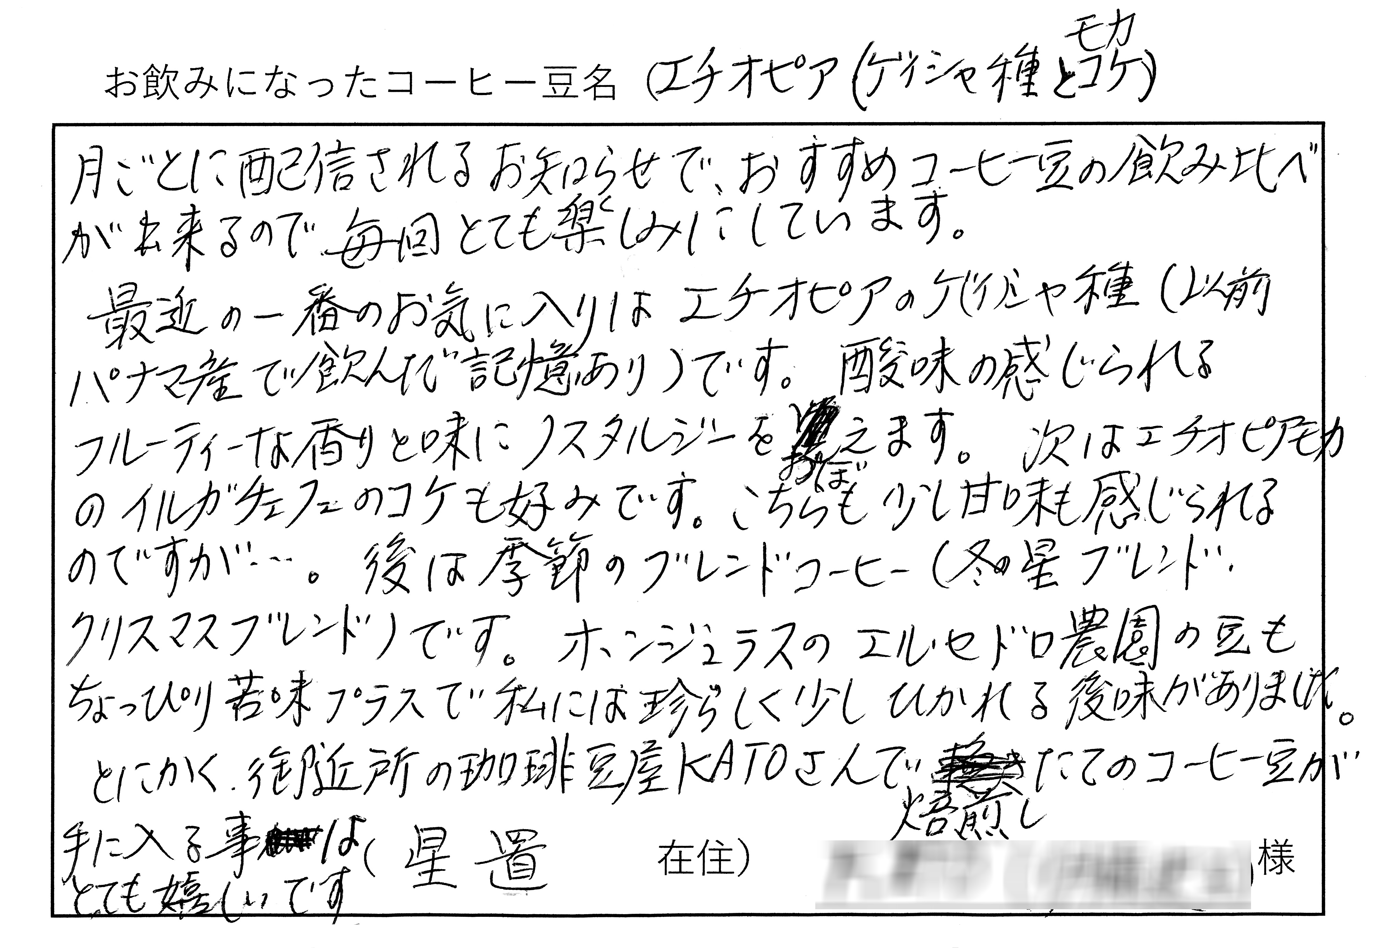 お飲みになったコーヒー豆名 (エチオピア(ゲイシャ種とモカコケ)
月ごとに配信されるお知らせで、おすすめコーヒー豆の飲み比べ
が出来るので毎回とても楽しみにしています。
最近の一番のお気に入りはエチオピアのゲイシャ種(以前
パナマ産で飲んだ記憶あり)です。酸味の感じられる
フルーティーな香りと味にノスタルジーをおぼえます。次はエチオピアモカ
のイルガチェフェのコケも好みです。こちらも少し甘味も感じられる
のですが…。後は季節のブレンドコーヒー(冬の星ブレンド・
クリスマスブレンド)です。ホンジュラスのエル・セドロ農園の豆も
ちょっぴり苦味プラスで私には珍らしく少しひかれる後味がありました。
とにかく、御近所の珈琲豆屋KATOさんで焙煎したてのコーヒー豆が
手に入る事は
とても嬉しいです
(星置 在住) 様